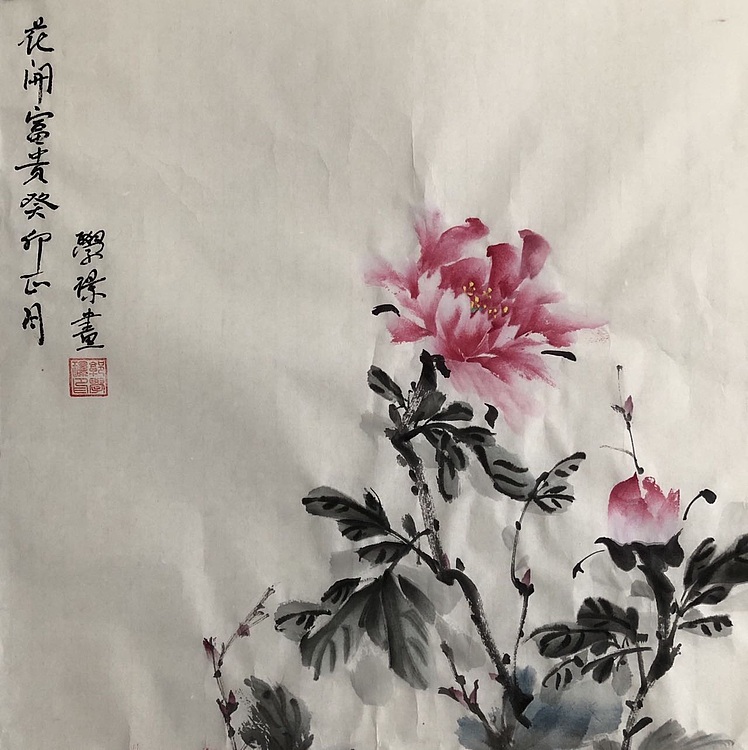 花開富貴癸卯正月
學瑔畫